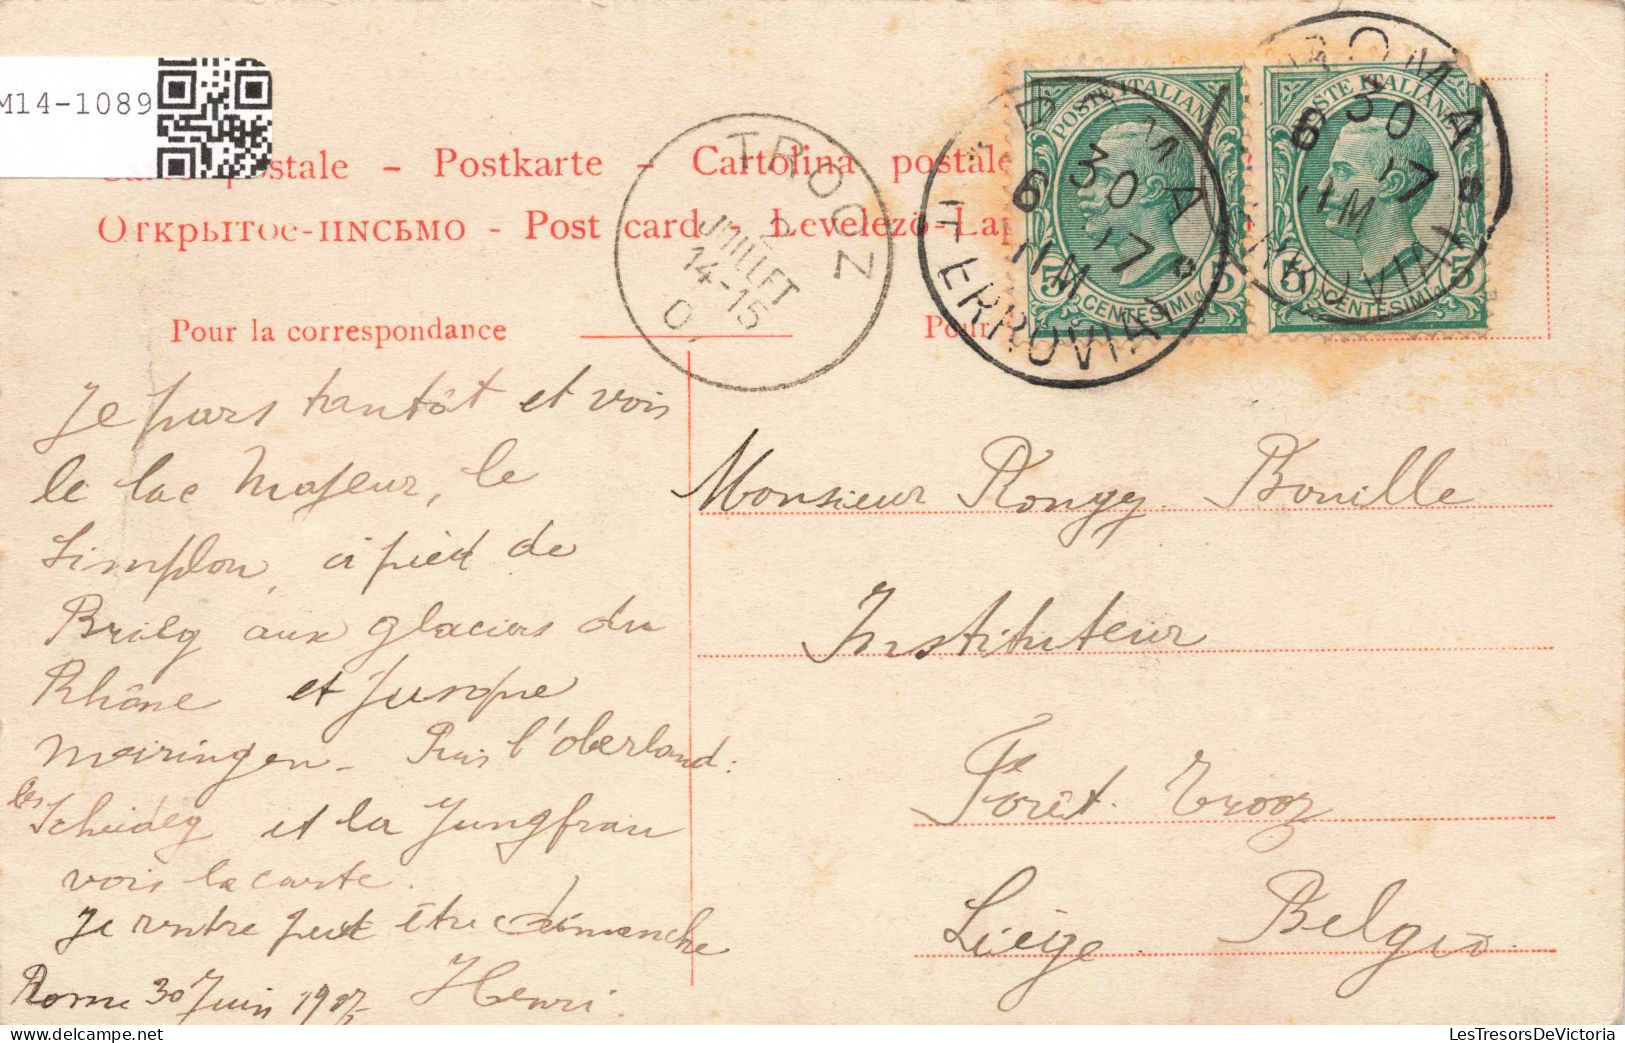 M14-1089
postale – Postkarte – Cartolina postale
Открытое-письмо - Post card - Levelező-Lap
Pour la correspondance
Pour
TROOZ
2
JUILLET
14-15
ROMA
30 6 07
11M
FERROVIA
POSTE ITALIANE
5 CENTESIMI 5
ROMA
30 6 07
11M
FERROVIA
POSTE ITALIANE
5 CENTESIMI 5
Je pars tantôt et vois
le lac Majeur, le
Simplon, à pied de
Brieg aux glaciers du
Rhône et jusque
Meiringen - Puis l'oberland:
les Scheideg et la Jungfrau
vois la carte.
Je rentre peut être dimanche
Rome 30 Juin 1907 Henri.
Monsieur Rongy Bouille
Instituteur
Forêt. Trooz
Liége. Belgio.
LesTresorsDeVictoria.com